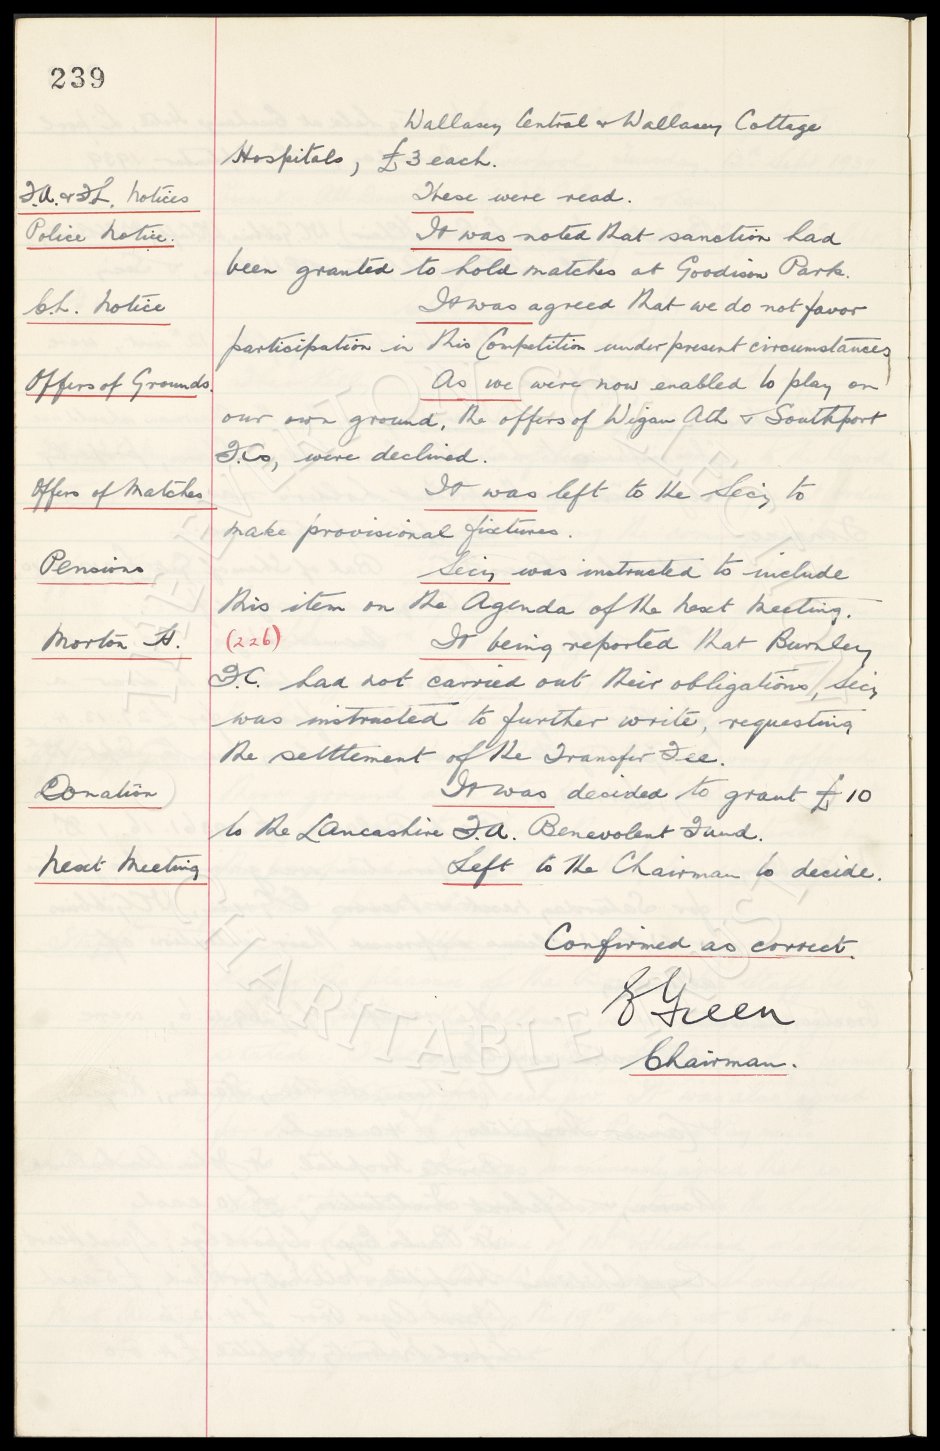 239
Wallasey Central & Wallasey Cottage
Hospitals, £3 each.
F.A. & F.L. Notices These were read.
Police Notice. It was noted that sanction had
been granted to hold matches at Goodison Park.
C.L. Notice It was agreed that we do not favor
participation in this Competition under present circumstances
Offers of Grounds. As we were now enabled to play on
our own ground, the offers of Wigan Ath & Southport
F.Cs, were declined.
Offers of Matches It was left to the Secy to
make provisional fixtures.
Pensions Secy was instructed to include
this item on the Agenda of the next meeting.
Morton H. (226) It being reported that Burnley
F.C. had not carried out their obligations, Secy
was instructed to further write, requesting
the settlement of the Transfer Fee.
Donation It was decided to grant £10
to the Lancashire F.A. Benevolent Fund.
Next Meeting Left to the Chairman to decide.
Confirmed as correct.
E Green
Chairman.
EVERTON COLLECTION
CHARITABLE TRUST